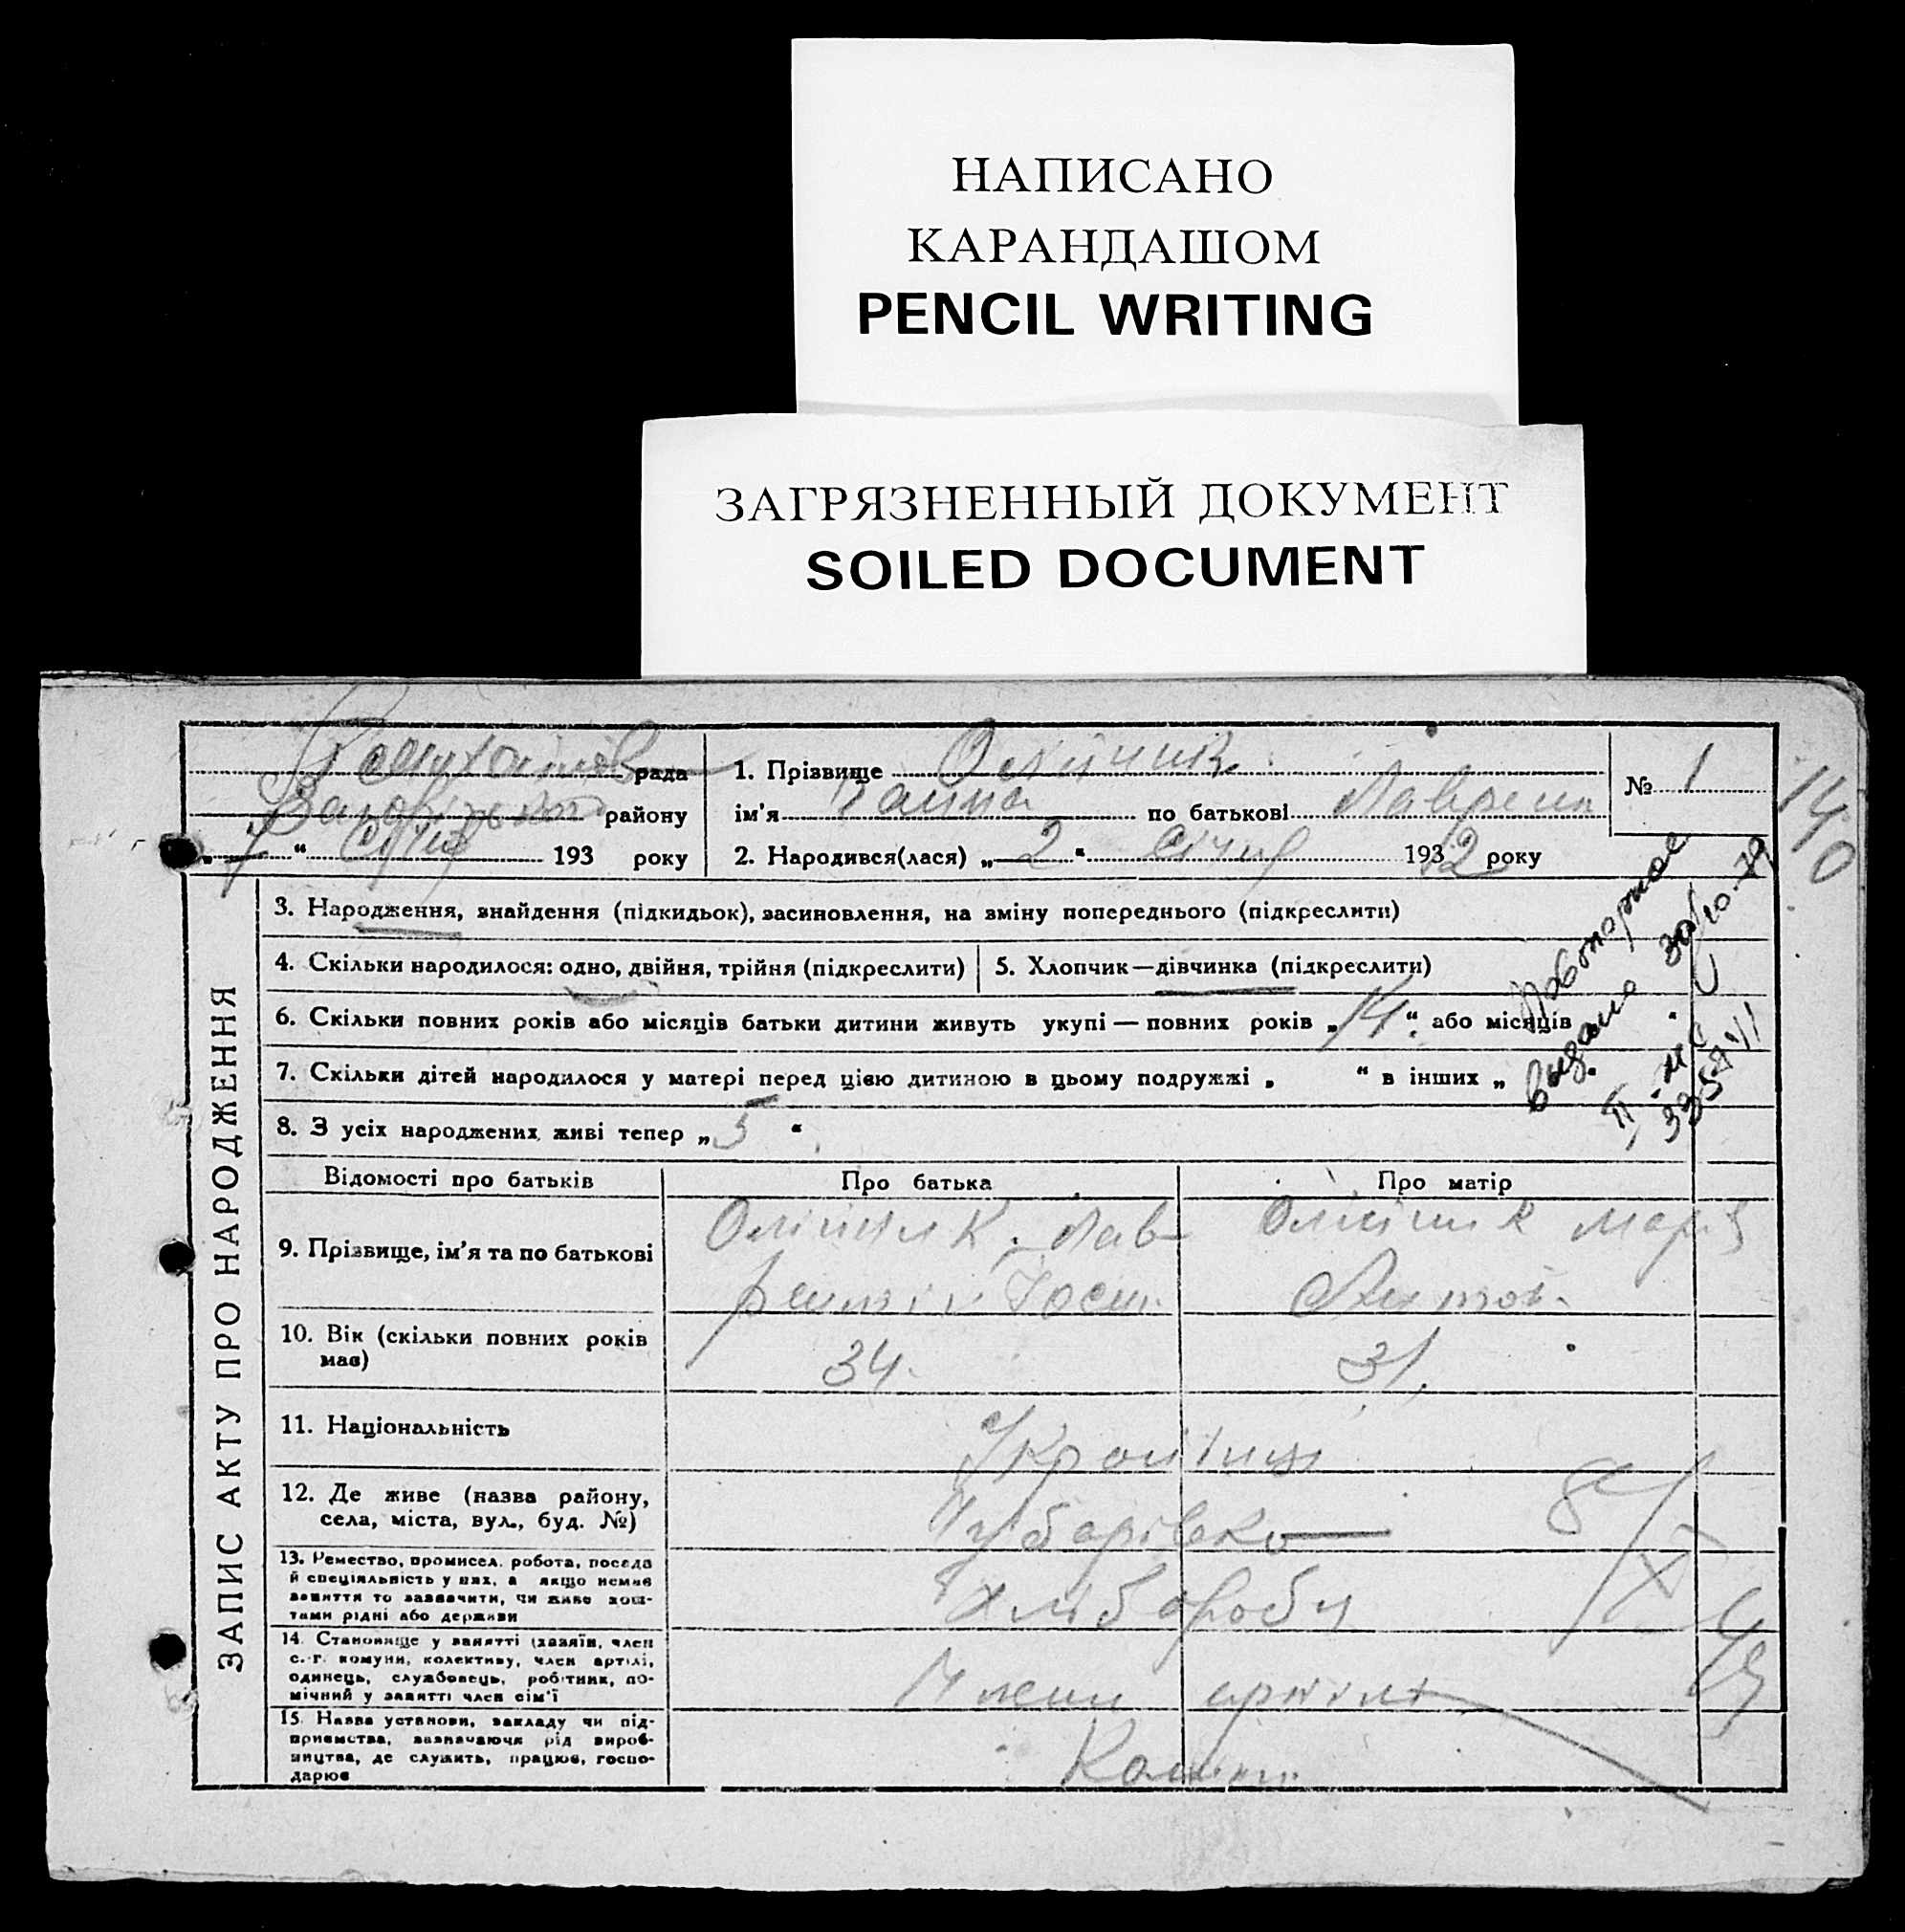 НАПИСАНО
КАРАНДАШОМ
PENCIL WRITING
ЗАГРЯЗНЕННЫЙ ДОКУМЕНТ
SOILED DOCUMENT
рада
району
7 “ Січня 193 року
1. Прізвище Олійник
ім'я Ганна по батькові Лаврент
2. Народився(лася) „ 2 “ Січня 1932 року
№ 1
140
ЗАПИС АКТУ ПРО НАРОДЖЕННЯ
3. Народження, знайдення (підкидьок), засиновлення, на зміну попереднього (підкреслити)
4. Скільки народилося: одно, двійня, трійня (підкреслити)
5. Хлопчик—дівчинка (підкреслити)
6. Скільки повних років або місяців батьки дитини живуть укупі — повних років „ 14 “ або місяців
7. Скільки дітей народилося у матері перед цією дитиною в цьому подружжі „ “ в інших „
8. З усіх народжених живі тепер „ 5 “
Повторное
выдано
Відомості про батьків
Про батька
Про матір
9. Прізвище, ім'я та по батькові
Олійник Лав
рентій Йосип.
Олійник Марія
10. Вік (скільки повних років має)
34.
31.
11. Національність
Українці
12. Де живе (назва району, села, міста, вул., буд. №)
Губарівка
13. Ремество, промисел, робота, посада
й спеціяльність у них, а якщо немає
заняття то зазначити, чи живе кош-
тами рідні або держави
Хлібороби
14. Становище у занятті (хазяїн, член
с.-г. комуни, колективу, член артілі,
одинець, службовець, робітник, по-
мічний у занятті член сім'ї
Члени артілі
15. Назва установи, закладу чи під-
приємства, зазначаючи рід вироб-
ництва, де служить, працює, госпо-
дарює